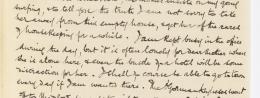 surprise, to tell you the truth I am not sorry to take
her away from this empty house, & get her of the cares
of housekeeping for a while. I am kept busy in the office
during the day, but it is often lonely for dear mother when
she is alone here, & even the bustle of a hotel will be some
distraction for her. I shall of course be able to go to town
every day if I am wanted there. The